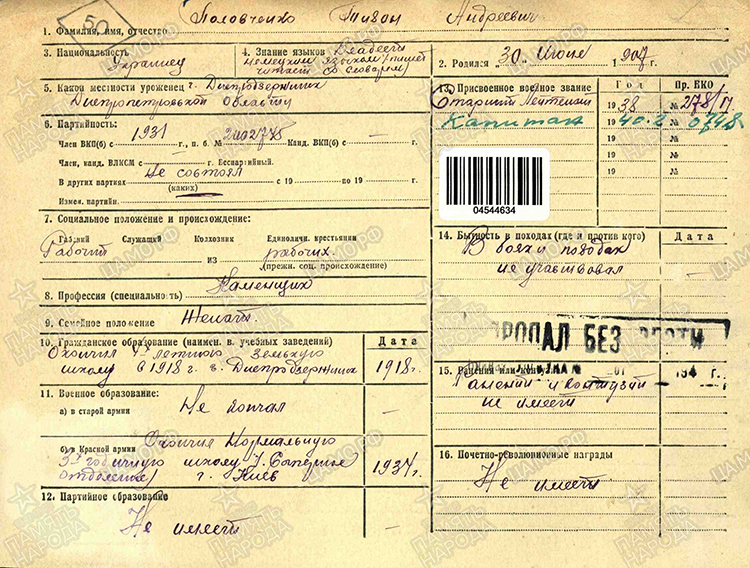 50
1. Фамилия, имя, отчество Половченко Тихон Андреевич
3. Национальность Украинец
4. Знание языков Владеет немецким языком (пишет читает со словарем)
2. Родился „30“ Июня 1907 г.
5. Какой местности уроженец г. Днепродзержинск
Днепропетровской области
6. Партийность:
Член ВКП(б) с 1931 г., п. б. № Канд. ВКП(б) с —
Член, канд. ВЛКСМ с — г. Беспартийный.
В других партиях Не состоял с 19 — по 19 — г.
(каких)
Измен. партийн.
7. Социальное положение и происхождение:
Рабочий Служащий Колхозник Единоличн. крестьянин
Рабочий из рабочих.
(прежн. соц. происхождение)
8. Профессия (специальность) Каменщик
9. Семейное положение Женат
10. Гражданское образование (наимен. в. учебных заведений) Дата
Окончил 4х летнюю земскую
школу в 1918 г. г. Днепродзержинск 1918 г.
11. Военное образование:
а) в старой армии Не кончал —
б) в Красной армии Окончил Нормальную
3х годичную школу
отделение г. Киев 1934 г.
12. Партийное образование
Не имеет —
13. Присвоенное военное звание Год Пр. НКО
Старший Лейтенант 1938 № 278/п
Капитан 1940.2 № 0748
19 №
19 №
19 №
04544634
14. Бытность в походах (где и против кого) Дата
В боях и походах
не участвовал
ПРОПАЛ БЕЗ ВЕСТИ
194 г.
15. Ранения или контузии
Ранений и контузий
не имеет
16. Почетно-революционные награды
Не имеет
ПАМЯТЬ НАРОДА
ЦАМО.РФ